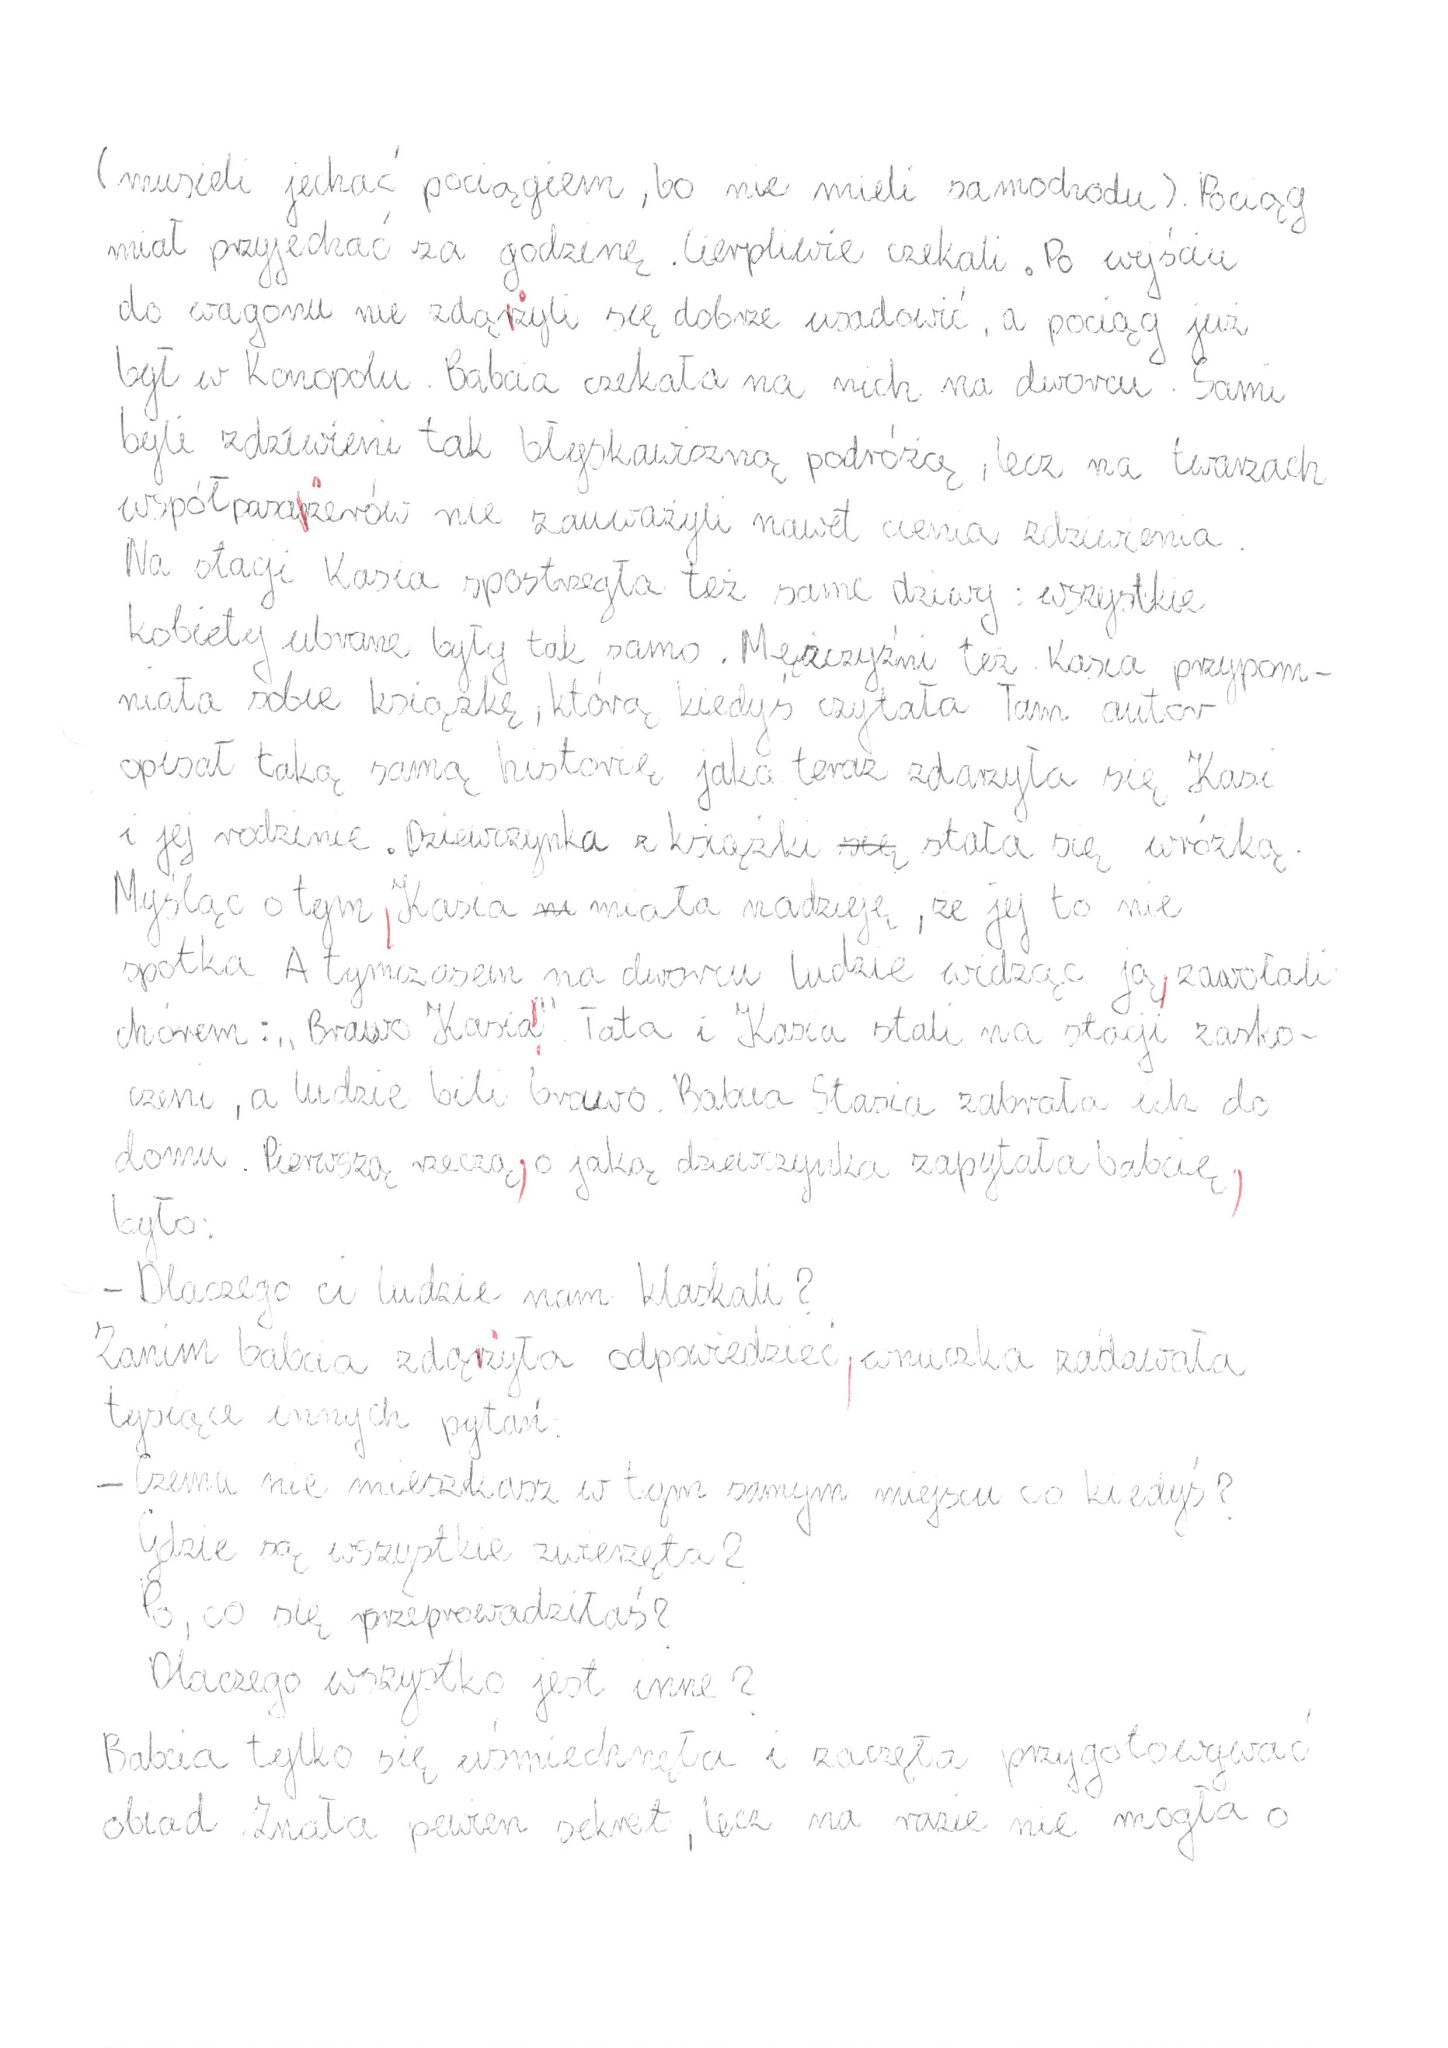 (musieli jechać pociągiem, bo nie mieli samochodu). Pociąg
miał przyjechać za godzinę. Cierpliwie czekali. Po wejściu
do wagonu nie zdążyli się dobrze usadowić, a pociąg już
był w Konopolu. Babcia czekała na nich na dworcu. Sami
byli zdziwieni tak błyskawiczną podróżą, lecz na twarzach
współpasażerów nie zauważyli nawet cienia zdziwienia.
Na stacji Kasia spostrzegła też same dziwy: wszystkie
kobiety ubrane były tak samo. Mężczyźni też. Kasia przypom-
niała sobie książkę, którą kiedyś czytała. Tam autor
opisał taką samą historię jaka teraz zdarzyła się Kasi
i jej rodzinie. Dziewczynka z książki się stała się wróżką.
Myśląc o tym, Kasia ni miała nadzieję, że jej to nie
spotka. A tymczasem na dworcu ludzie widząc ją, zawołali
chórem: „Brawo Kasia!" Tata i Kasia stali na stacji zasko-
czeni, a ludzie bili brawo. Babcia Stasia zabrała ich do
domu. Pierwszą rzeczą, o jaką dziewczynka zapytała babcię,
było:
- Dlaczego ci ludzie nam klaskali?
Zanim babcia zdążyła odpowiedzieć, wnuczka zadawała
tysiące innych pytań:
- Czemu nie mieszkasz w tym samym miejscu co kiedyś?
Gdzie są wszystkie zwierzęta?
Po, co się przeprowadziłaś?
Dlaczego wszystko jest inne?
Babcia tylko się uśmiechnęła i zaczęła przygotowywać
obiad. Znała pewien sekret, lecz na razie nie mogła o